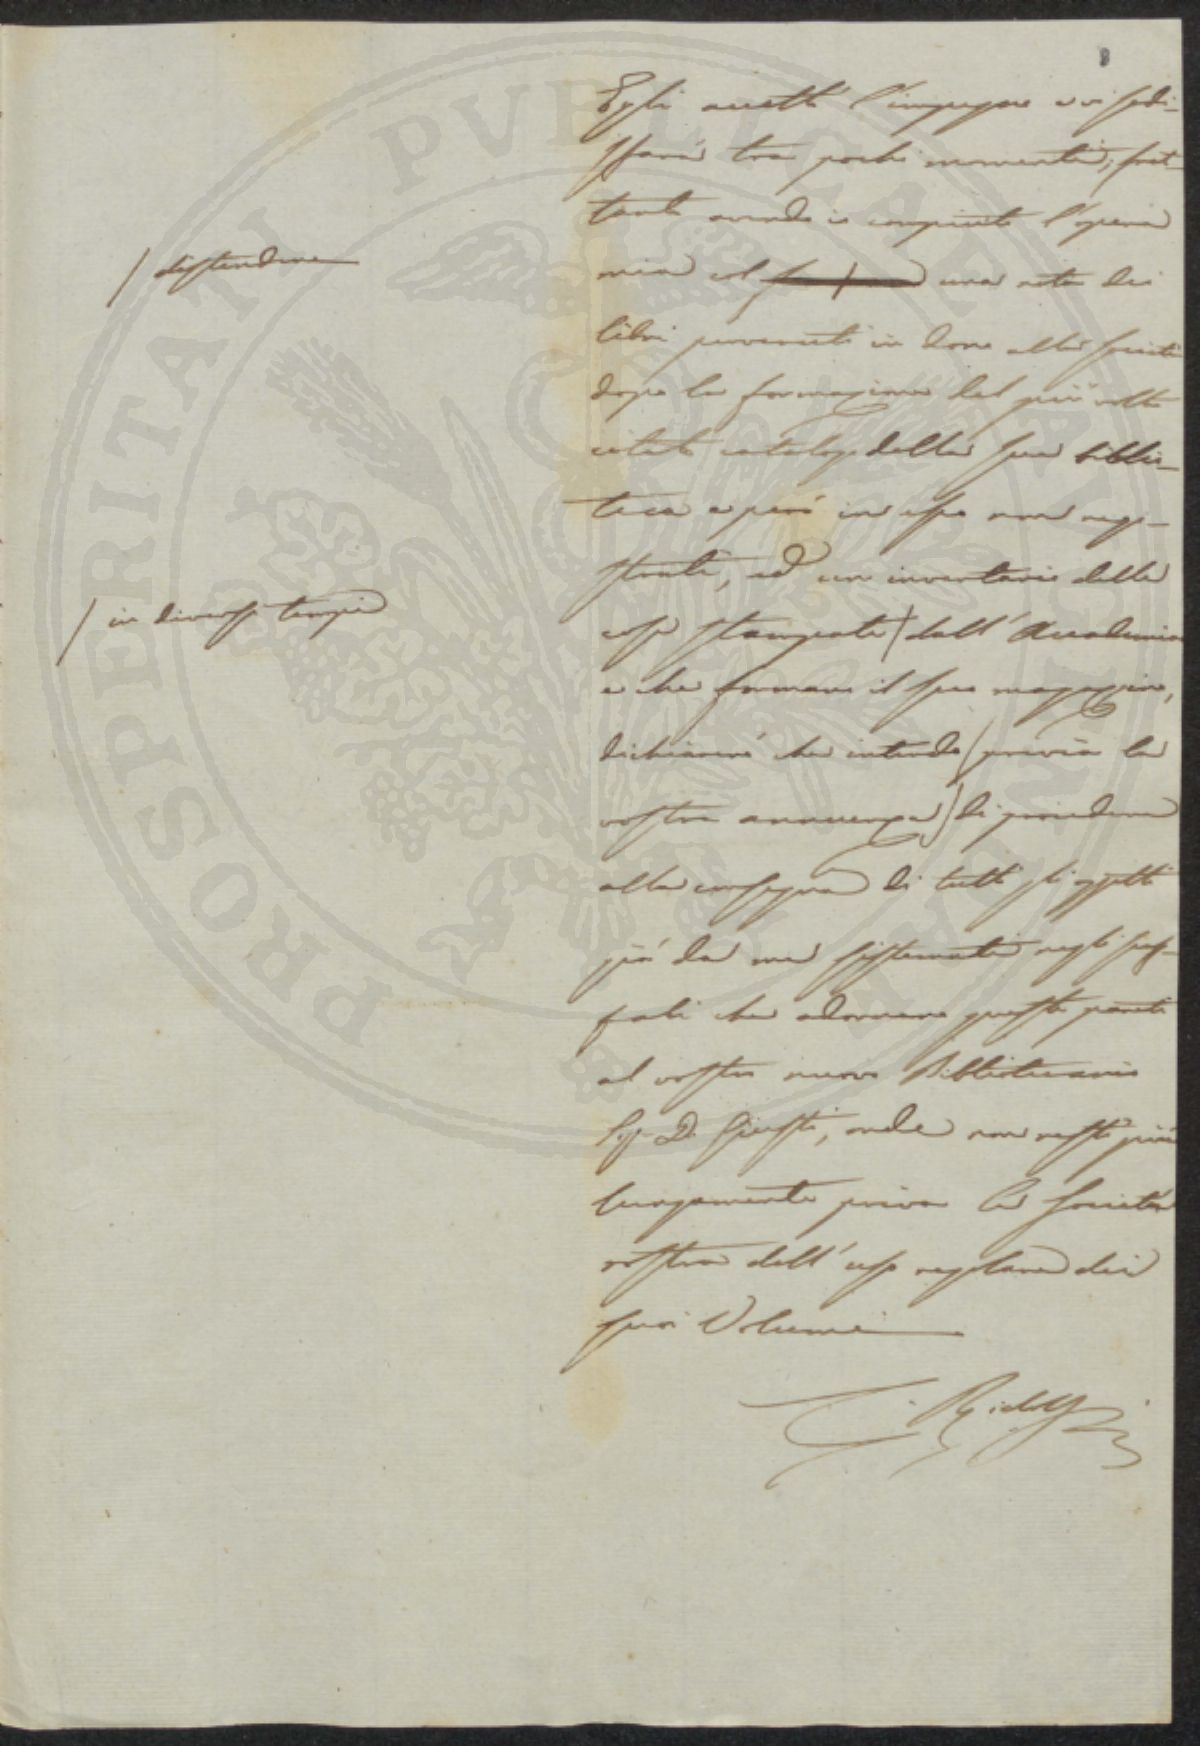 8
Egli accettò l'impegno e vi sodi-
sfarà tra pochi momenti; frat-
tanto avendo io compiuto l'opera
mia col una nota dei
libri pervenuti in dono alla società
dopo la formazione del più volte
citato catalogo della sua biblio-
teca e però in esso non regi-
strati, ed un inventario delle
cose stampate / dall'Accademia
e che formano il suo magazzino,
dichiarerò che intendo (previa la
vostra annuenza) di procedere
alla consegna di tutti gli oggetti
già da me sistemati negli scaf-
fali che adornano queste pareti
al vostro nuovo Bibliotecario
Sig. D. Giusti, onde non resti più
lungamente priva la Società
vostra dell'uso regolare dei
suoi Volumi
C. Ridolfi
/ distendere
/ in diversi tempi
PROSPERITATI PVBLICAE AVGENDAE